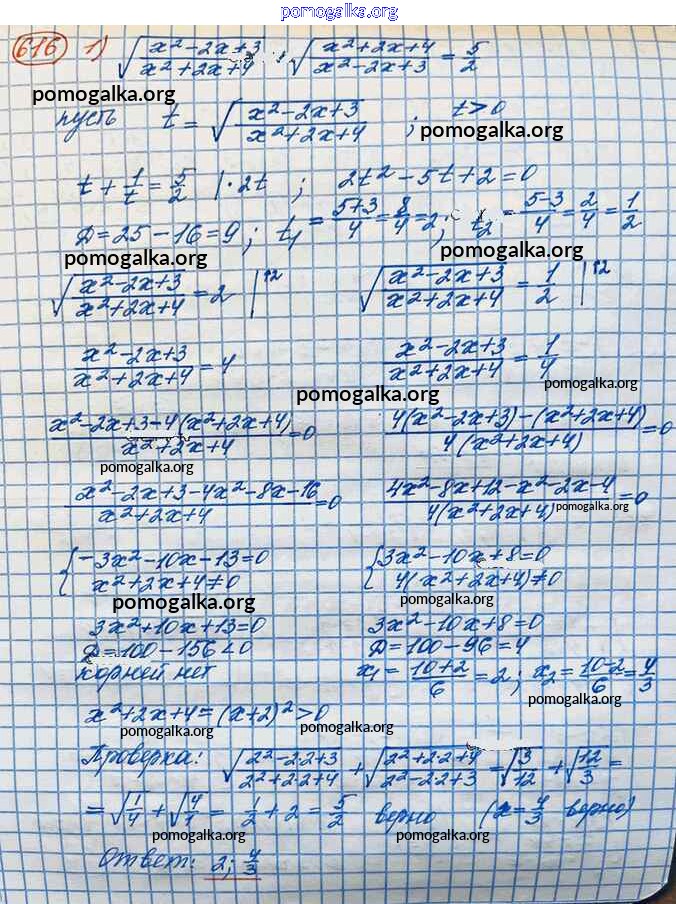 pomogalka.org
616 1) √((x²-2x+3)/(x²+2x+4)) + √((x²+2x+4)/(x²-2x+3)) = 5/2
pomogalka.org
пусть t = √((x²-2x+3)/(x²+2x+4)) ; t>0
pomogalka.org
t + 1/t = 5/2 |·2t ; 2t²-5t+2=0
Д=25-16=9; t₁ = (5+3)/4 = 8/4 = 2; t₂ = (5-3)/4 = 2/4 = 1/2
pomogalka.org pomogalka.org
√((x²-2x+3)/(x²+2x+4)) = 2 |↑2 √((x²-2x+3)/(x²+2x+4)) = 1/2 |↑2
(x²-2x+3)/(x²+2x+4) = 4 (x²-2x+3)/(x²+2x+4) = 1/4
pomogalka.org
pomogalka.org
(x²-2x+3-4(x²+2x+4))/(x²+2x+4) = 0 (4(x²-2x+3)-(x²+2x+4))/(4(x²+2x+4)) = 0
pomogalka.org pomogalka.org
(x²-2x+3-4x²-8x-16)/(x²+2x+4) = 0 (4x²-8x+12-x²-2x-4)/(4(x²+2x+4)) = 0
pomogalka.org
{-3x²-10x-13=0 {3x²-10x+8=0
x²+2x+4≠0 4(x²+2x+4)≠0
pomogalka.org pomogalka.org
3x²+10x+13=0 3x²-10x+8=0
Д=100-156<0 Д=100-96=4
корней нет x₁ = (10+2)/6 = 2; x₂ = (10-2)/6 = 4/3
pomogalka.org
x²+2x+4=(x+2)²>0
pomogalka.org pomogalka.org
Проверка: √((2²-2·2+3)/(2²+2·2+4)) + √((2²+2·2+4)/(2²-2·2+3)) = √(3/12) + √(12/3) =
= √(1/4) + √(4/1) = 1/2 + 2 = 5/2 верно (x=4/3 верно)
pomogalka.org pomogalka.org
Ответ: 2; 4/3
pomogalka.org